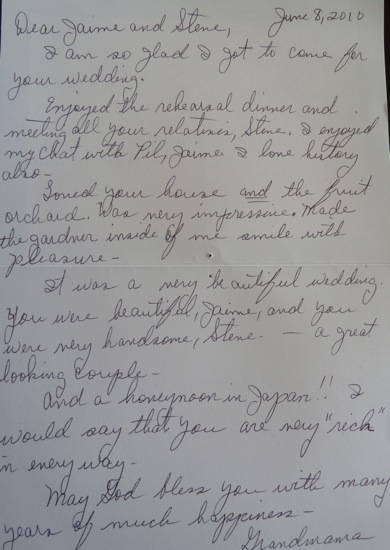 June 8, 2010
Dear Jaime and Steve,
I am so glad I got to come for
your wedding.
Enjoyed the rehearsal dinner and
meeting all your relatives, Steve. I enjoyed
my chat with Pil, Jaime. I love history
also -
Loved your house and the fruit
orchard. Was very impressive. Made
the gardner inside of me smile with
pleasure -
It was a very beautiful wedding.
You were beautiful, Jaime, and you
were very handsome, Steve. - a great
looking couple -
And a honeymoon in Japan!! I
would say that you are very "rich"
in every way -
May God bless you with many
years of much happiness -
Grandmama